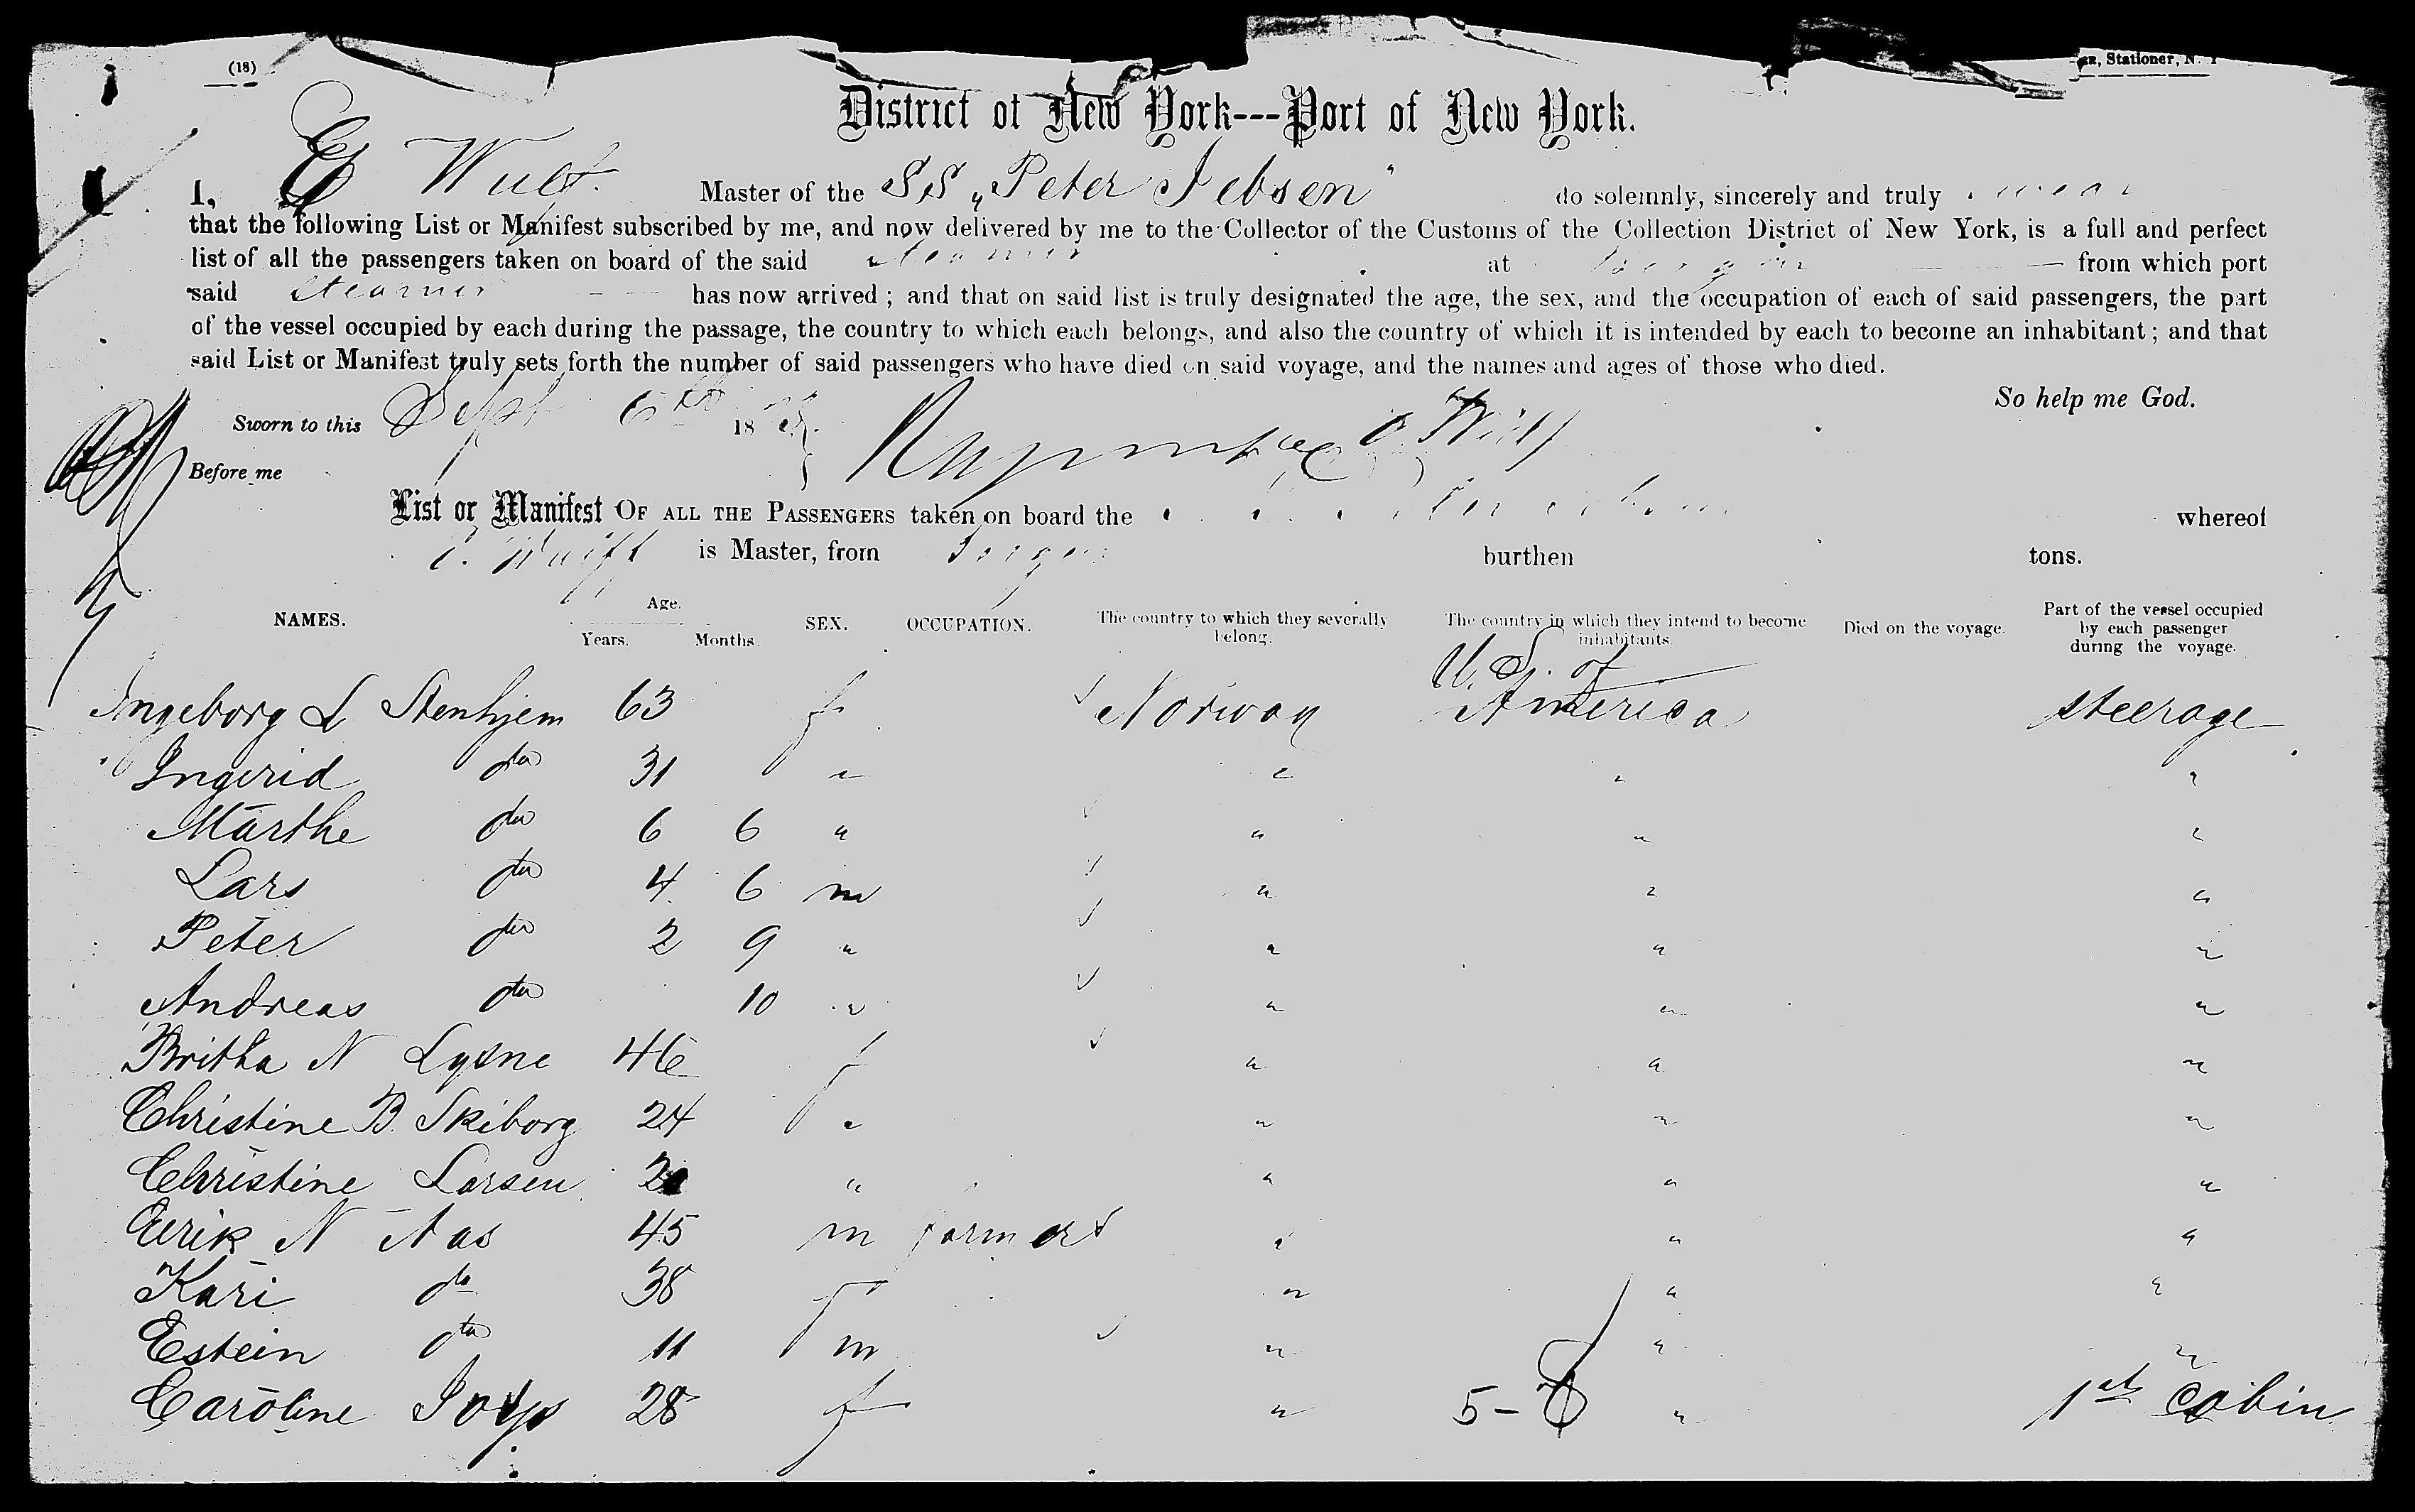 (18)
ER, Stationer, N. Y
District of New York---Port of New York.
I, E Wulf. Master of the SS „Peter Jebsen" do solemnly, sincerely and truly swear
that the following List or Manifest subscribed by me, and now delivered by me to the Collector of the Customs of the Collection District of New York, is a full and perfect
list of all the passengers taken on board of the said steamer at Bergen from which port
said steamer has now arrived ; and that on said list is truly designated the age, the sex, and the occupation of each of said passengers, the part
of the vessel occupied by each during the passage, the country to which each belongs, and also the country of which it is intended by each to become an inhabitant ; and that
said List or Manifest truly sets forth the number of said passengers who have died on said voyage, and the names and ages of those who died.
So help me God.
Sworn to this Sept 6th 18
Before me
List or Manifest OF ALL THE PASSENGERS taken on board the whereof
Wulff is Master, from Bergen burthen tons.
NAMES. Age. Years. Months. SEX. OCCUPATION. The country to which they severally belong. The country in which they intend to become inhabitants. Died on the voyage. Part of the vessel occupied by each passenger during the voyage.
Ingeborg L Stenhjem 63 f Norway U. S. of America steerage
Ingerid do 31 " " " "
Marthe do 6 6 " " " "
Lars do 4 6 m " " "
Peter do 2 9 " " " "
Andreas do 10 " " " "
Britha N Lysne 46 f " " "
Christine B. Skiborg 24 " " " "
Christine Larsen " " " "
Erik N Aas 45 m farmer " " "
Kari do 38 f " " "
Estein do 11 m " " "
Caroline 28 f " 5- " 1st Cabin